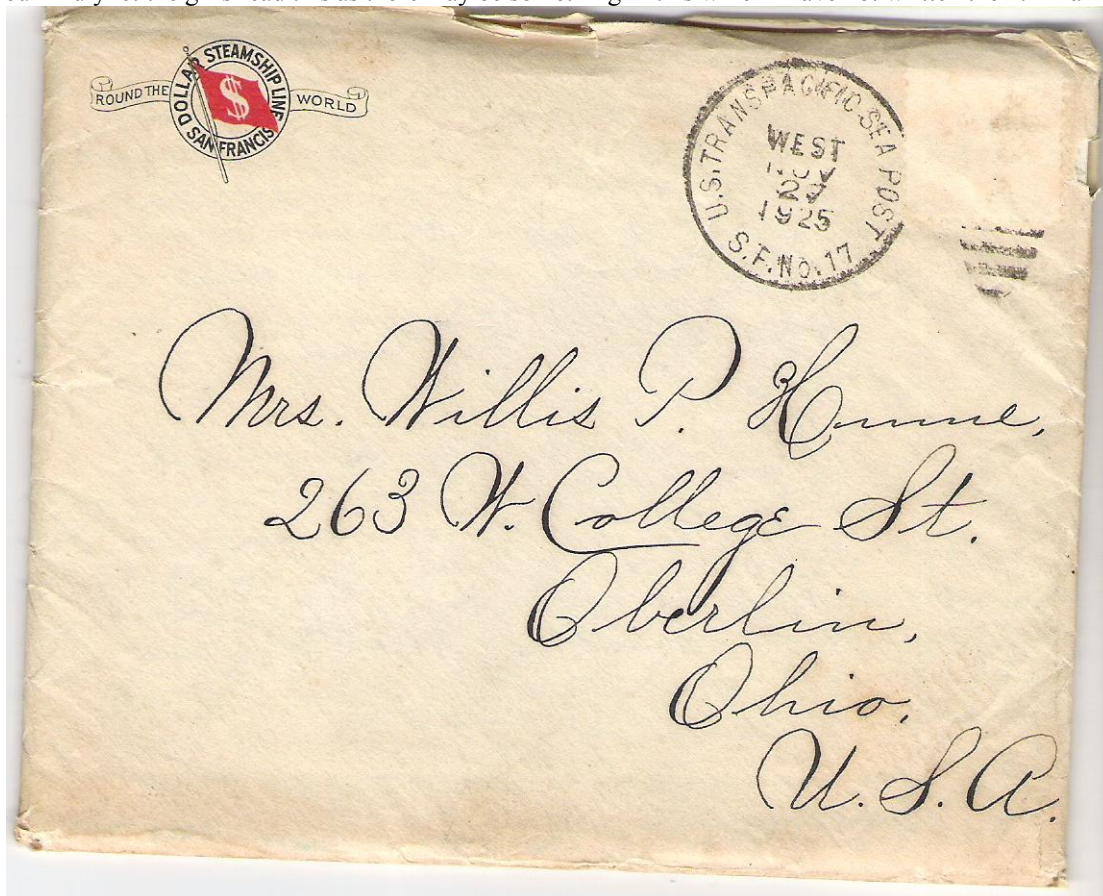 ROUND THE WORLD
DOLLAR STEAMSHIP LINE
SAN FRANCISCO
$
U.S. TRANSPACIFIC SEA POST
WEST
NOV
1925
S.F. No. 17
Mrs. Willis P.
263 W. College St.
Oberlin,
Ohio,
U.S.A.